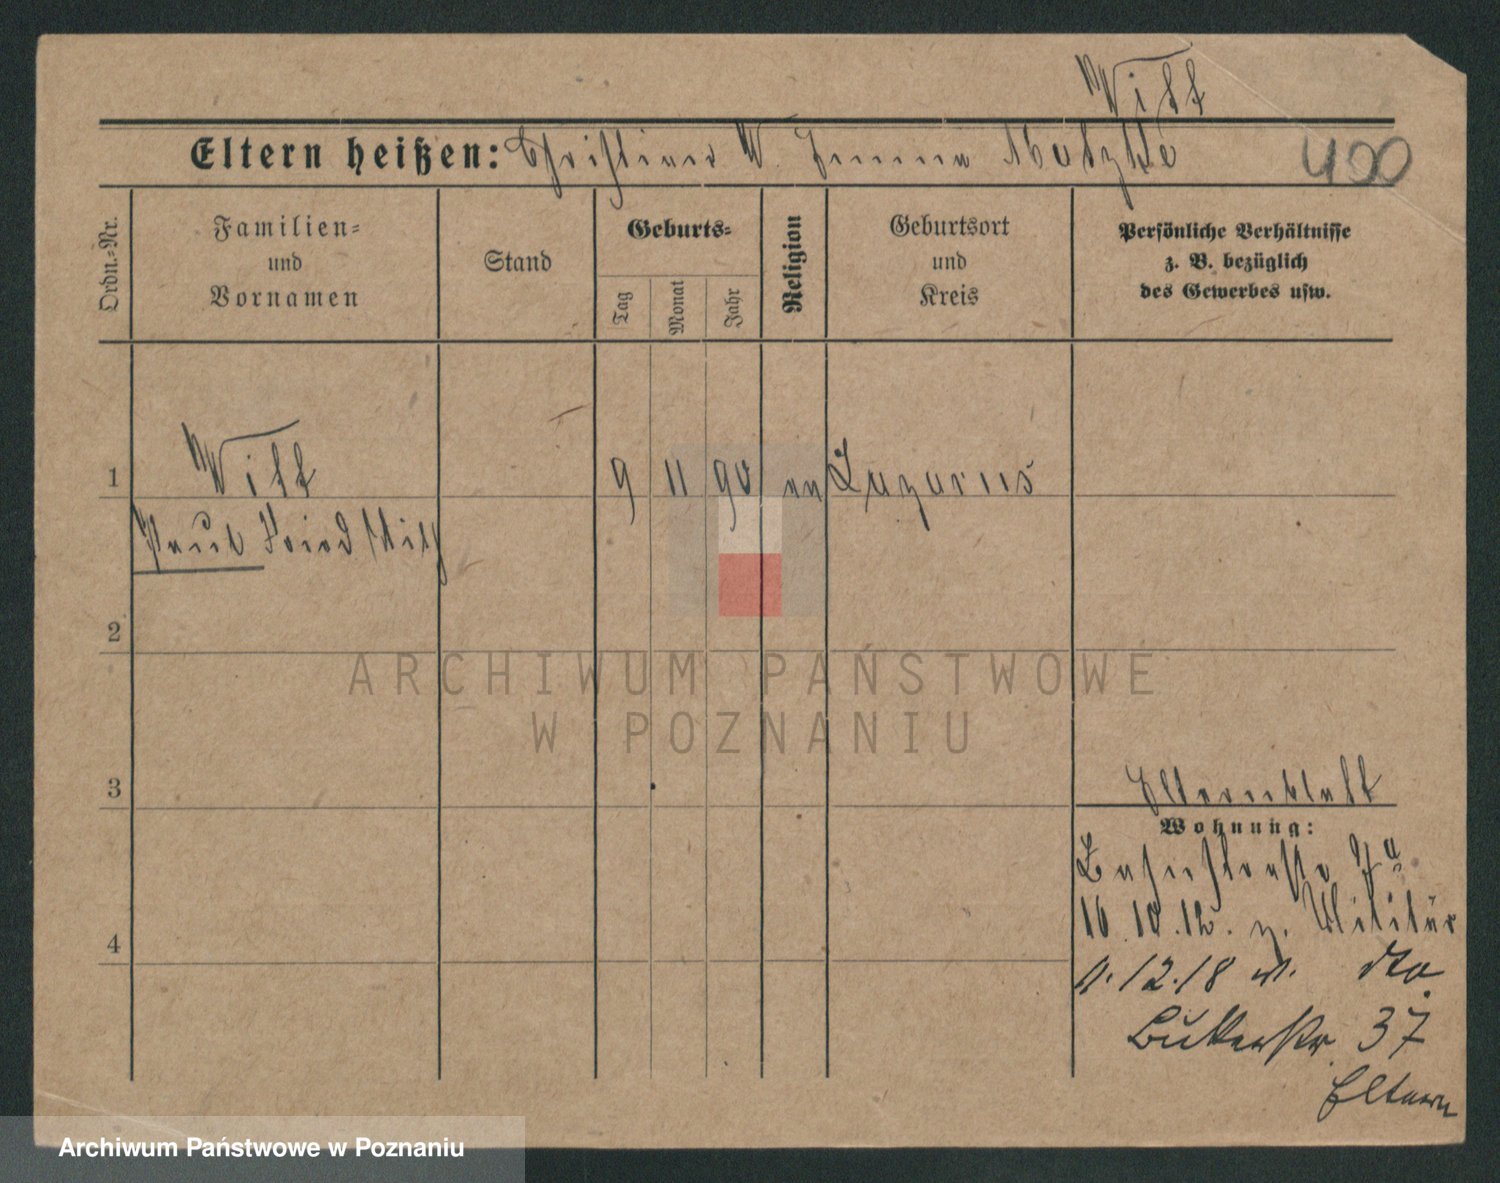 Witt
Eltern heißen: Christian W. Emma Matzke
400
Ordn.-Nr.
Familien-
und
Vornamen
Stand
Geburts-
Tag
Monat
Jahr
Religion
Geburtsort
und
Kreis
Persönliche Verhältnisse
z. B. bezüglich
des Gewerbes usw.
1
Witt
9 11 90 ev Lazarus
Paul Fried Wilh
2
ARCHIWUM PAŃSTWOWE
W POZNANIU
3
Elternblatt
Wohnung:
10.12. z. Militär
4
12.18 v. dto
Butterstr 37
Eltern
Archiwum Państwowe w Poznaniu